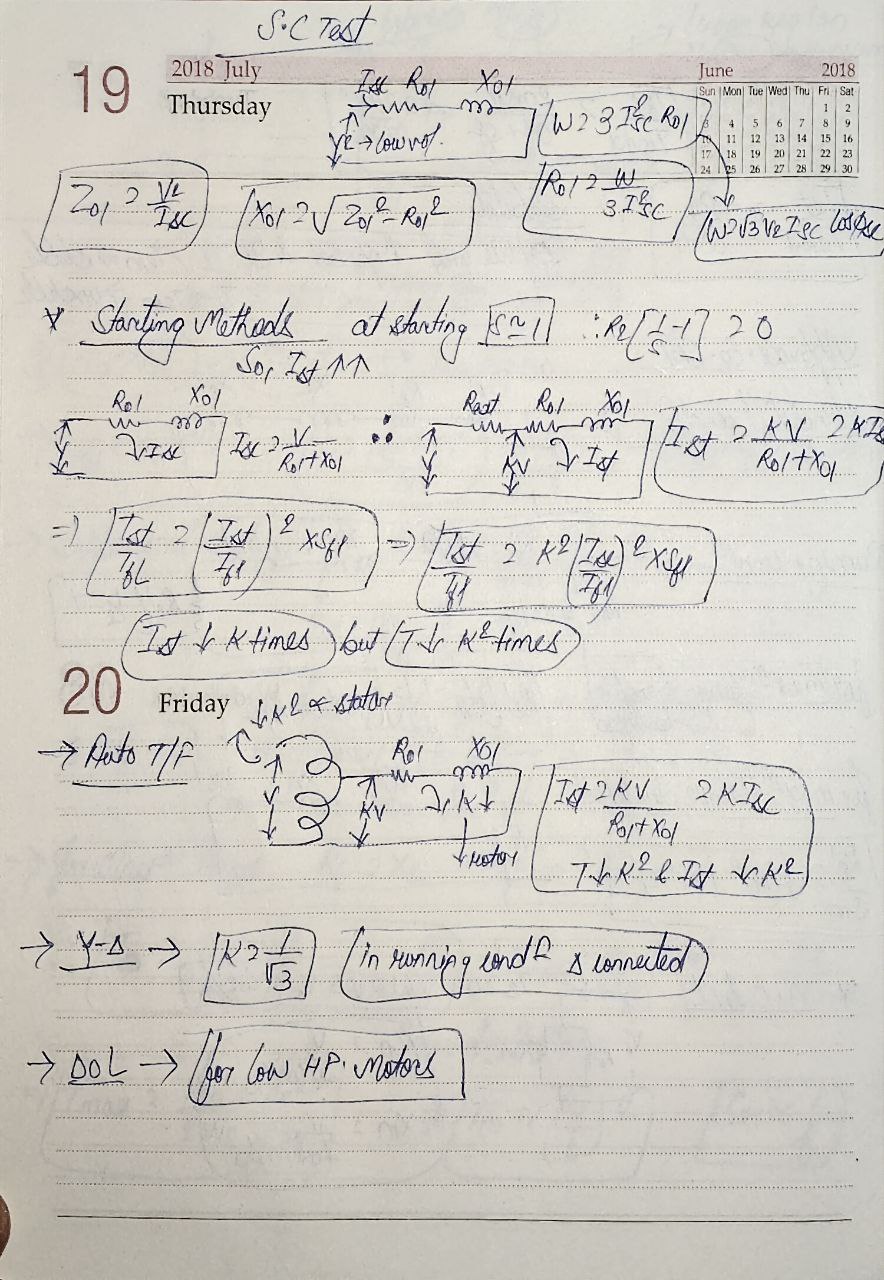 S.C Test
19 2018 July
Thursday
June 2018
Sun Mon Tue Wed Thu Fri Sat
1 2
3 4 5 6 7 8 9
10 11 12 13 14 15 16
17 18 19 20 21 22 23
24 25 26 27 28 29 30
Isc R01 X01
→ low vol.
W = 3 I²sc R01
Z01 = Ve/Isc
X01 = √Z01² - R01²
R01 = W/3I²sc
W = √3 Ve Isc cosφsc
* Starting Methods at starting S ≃ 1 ∴ R2[1/s - 1] = 0
So, Ist ↑↑
R01 X01
V Isc
Isc = V/R01+X01
∴
Rext R01 X01
V KV Ist
Ist = KV/R01+X01 = KIs
=> Tst/TfL = (Ist/Ifl)² × Sfl => Tst/Tfl = K² (Isc/Ifl)² × Sfl
Ist ↓ K times but T↓ K² times
20 Friday
↓K² of stator
→ Auto T/F
V KV R01 X01
↓ K ↓
↓ motor
Ist = KV/R01+X01 = KIsc
T↓ K² & Ist ↓ K²
→ Y-Δ → K = 1/√3 in running condn Δ connected
→ DOL → for Low HP. Motors